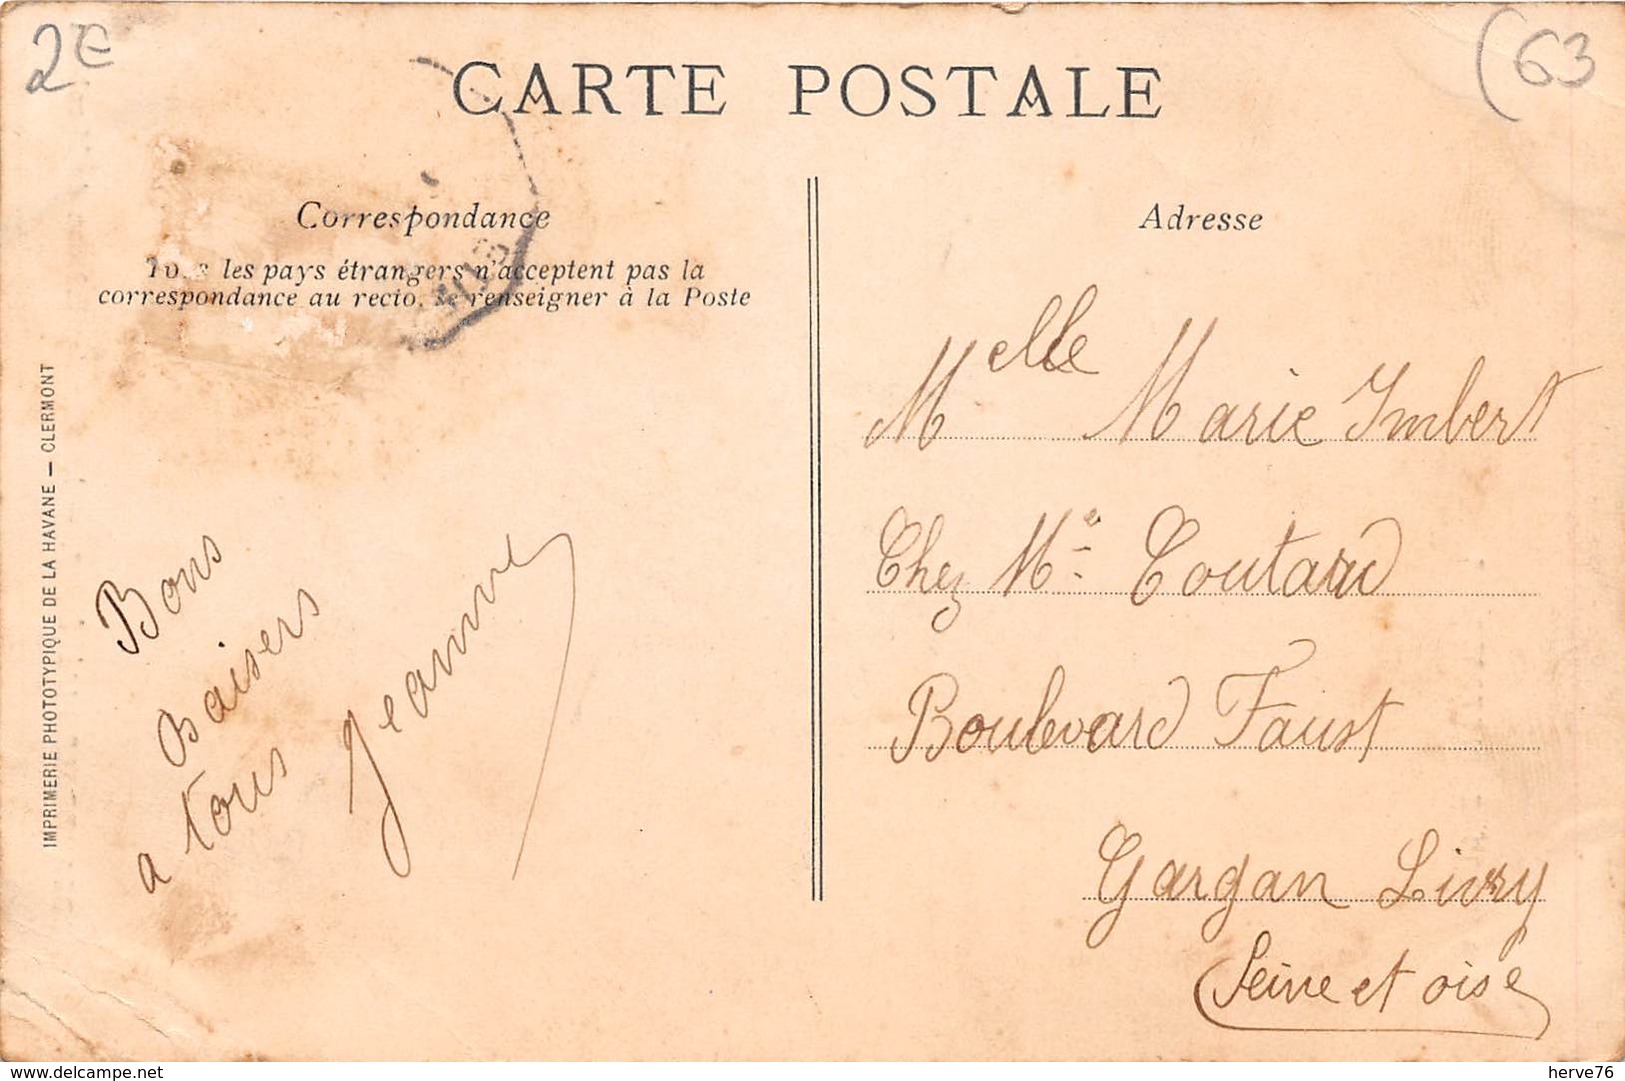 2€
(63
CARTE POSTALE
Correspondance
Tous les pays étrangers n'acceptent pas la
correspondance au recto, se renseigner à la Poste
IMPRIMERIE PHOTOTYPIQUE DE LA HAVANE — CLERMONT
Bons
Baisers
a tous
Jeanne
Adresse
Melle Marie Imbert
Chez Me Coutard
Boulevard Faust
Gargan Livry
Seine et oise
www.delcampe.net
herve76